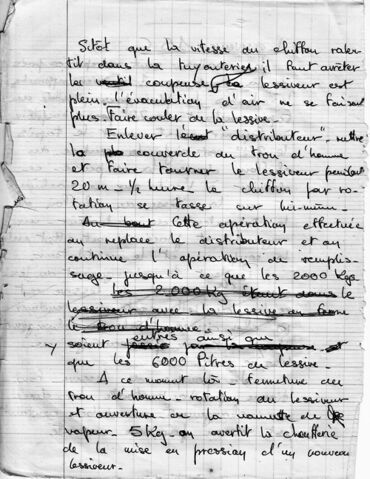 Sitôt que la vitesse du chiffon ralen-
tit dans la tuyauterie, il faut arrêter
la coupeuse, le lessiveur est
plein l'évacuation d'air ne se faisant
plus. Faire couler de la lessive.
Enlever le "distributeur" mettre
la couvercle du trou d'homme
et faire tourner le lessiveur pendant
20 m - 1/2 heure. le chiffon par ro-
tation se tasse sur lui-même.
Au bout Cette opération effectuée
on replace le distributeur et on
continue l'opération de remplis-
sage jusqu'à ce que les 2000 Kgs
les 2.000 Kg étant dans le
lessiveur avec la lessive on ferme
le trou d'homme.
entrés ainsi que
soient et
que les 6000 litres de lessive.
A ce moment là - fermeture du
trou d'homme - rotation du lessiveur
et ouverture de la vanne de
vapeur - 5 Kg - on avertit la chaufferie
de la mise en pression d'un nouveau
lessiveur.